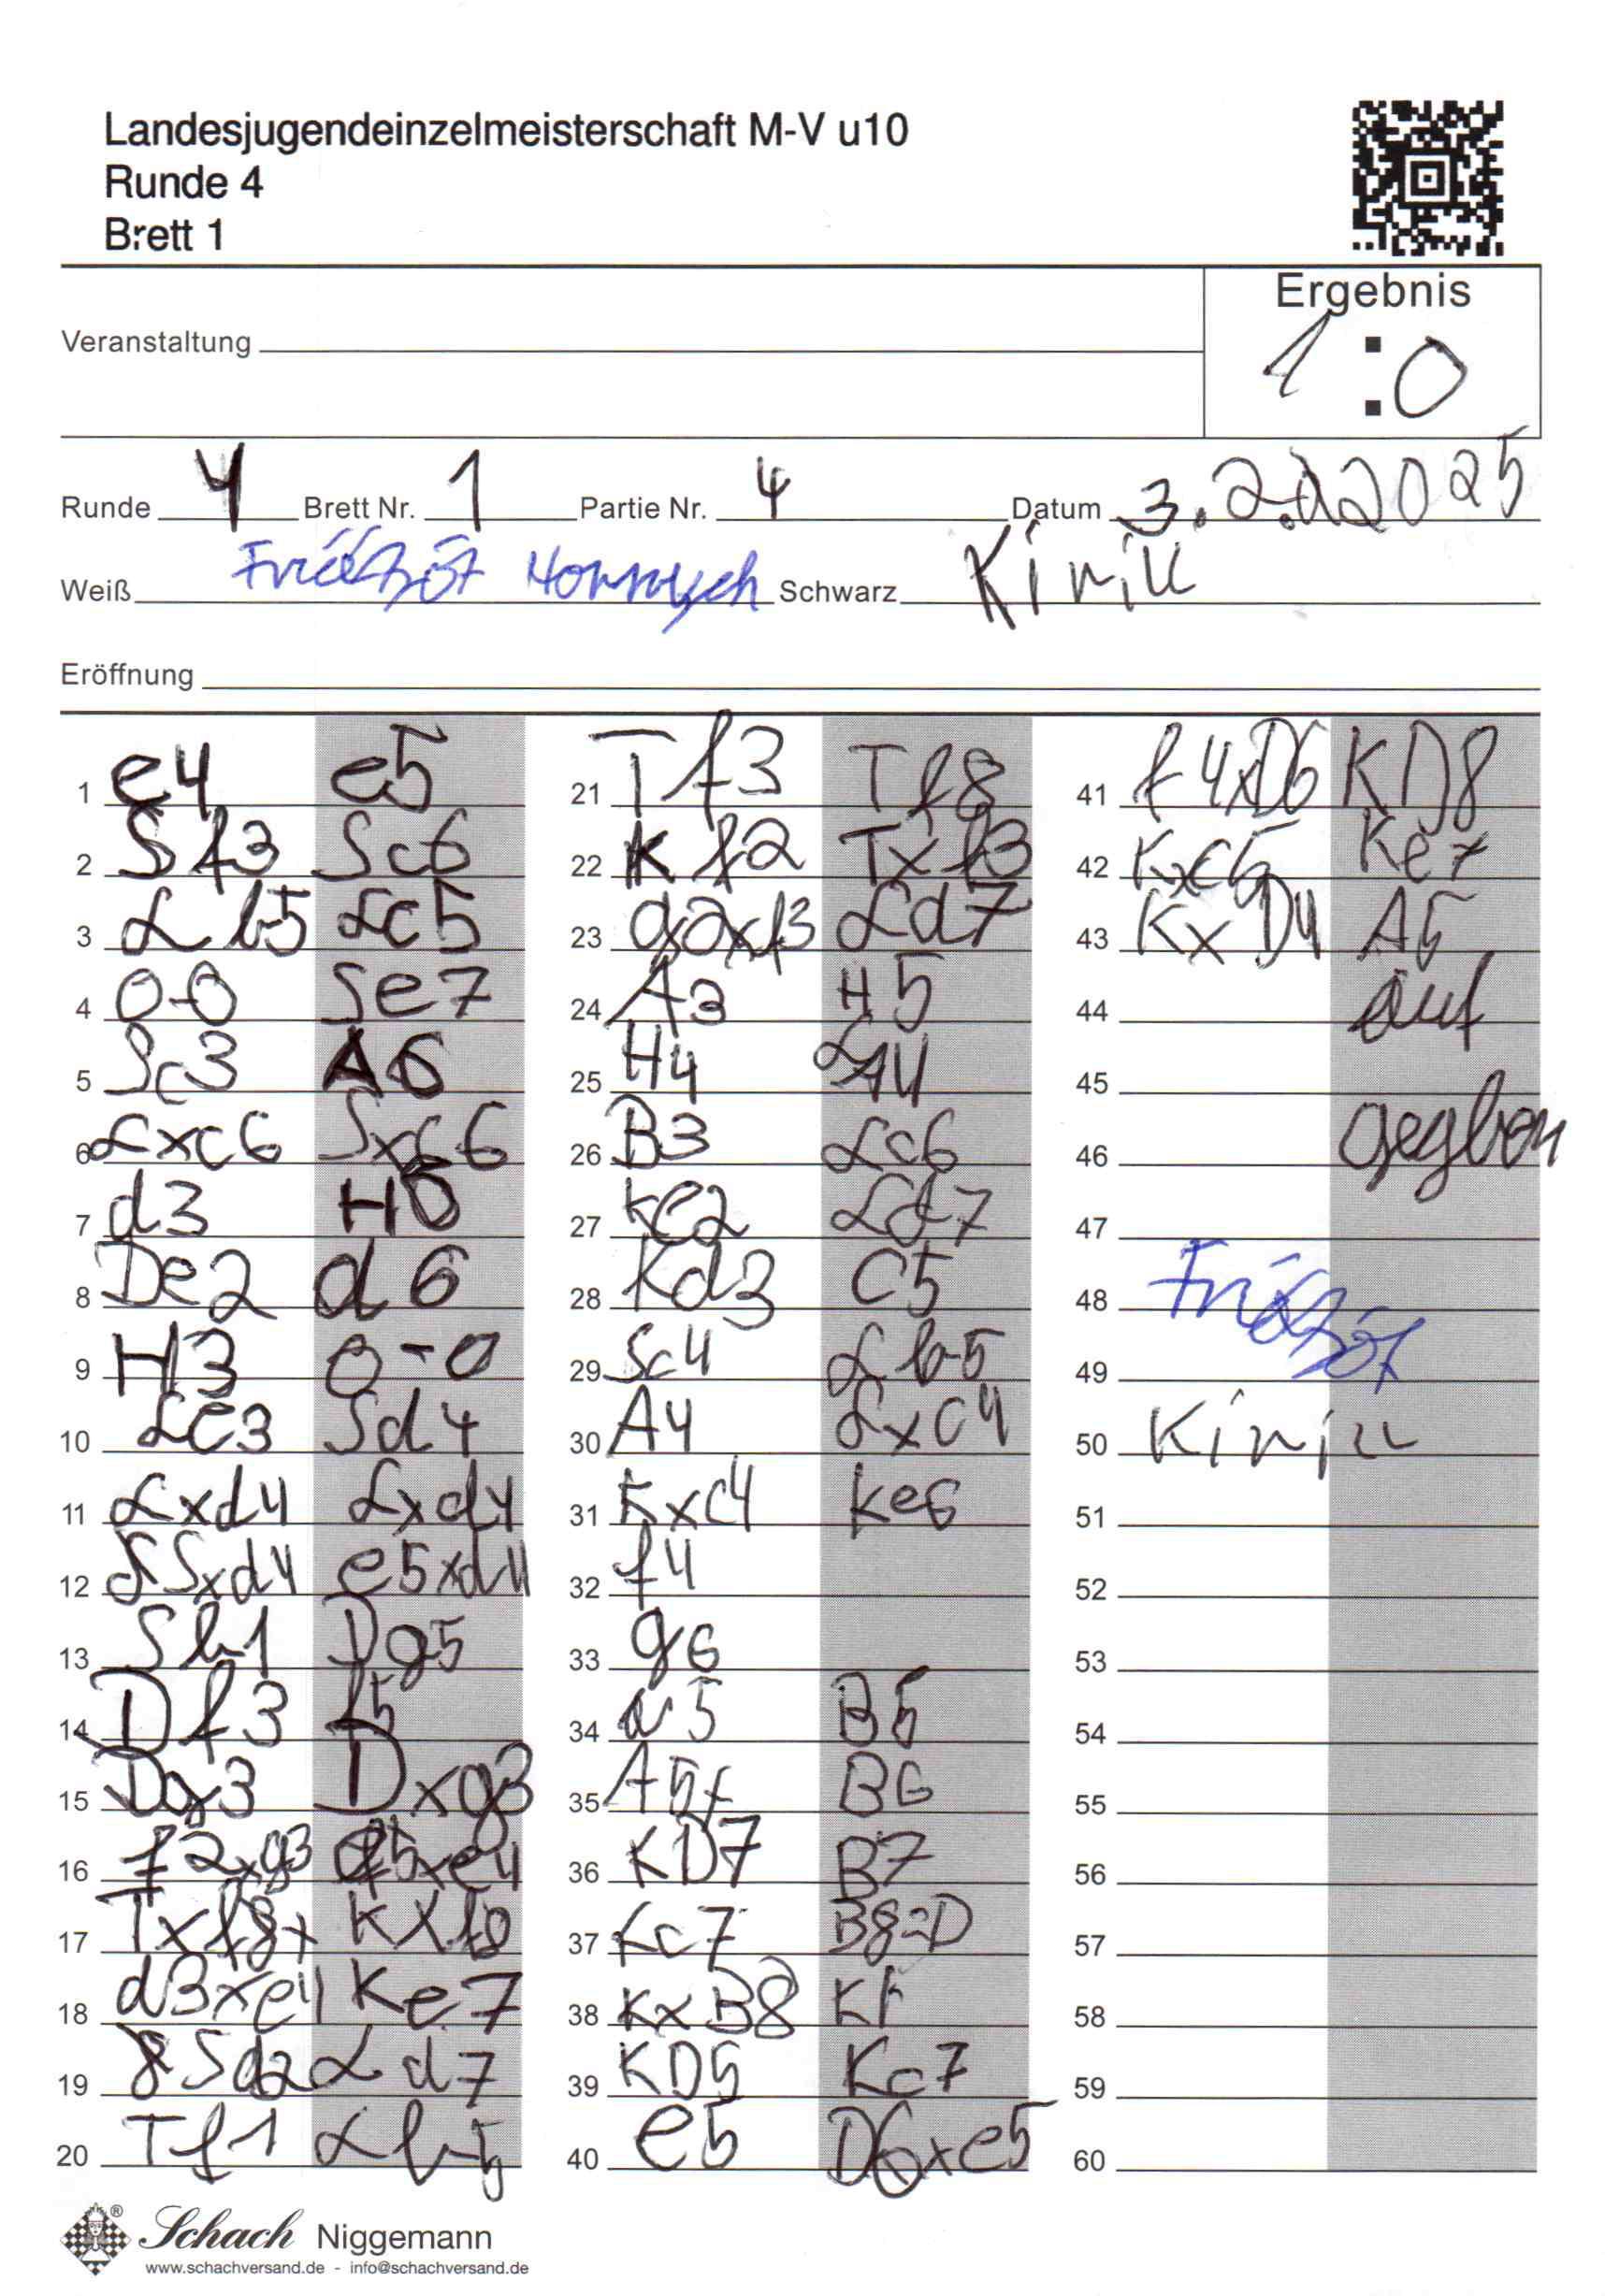 Landesjugendeinzelmeisterschaft M-V u10
Runde 4
Brett 1
Ergebnis
1:0
Veranstaltung
Runde 4 Brett Nr. 1 Partie Nr. 4 Datum 3.2.2025
Weiß Schwarz Kirill
Eröffnung
1 e4 e5
2 Sf3 Sc6
3 Lb5 Lc5
4 0-0 Se7
5 Sc3 A6
6 Lxc6 Sxc6
7 d3 H6
8 De2 d6
9 H3 0-0
10 Le3 Sd4
11 Lxd4 Lxd4
12 Sxd4 e5xd4
13 Sb1 Dg5
14 Df3 f5
15 Dg3 Dxg3
16 f2xg3 f5xe4
17 Txf8+ Kxf8
18 d3xe4 Ke7
19 Sd2 Ld7
20 Tf1 Lb5
21 Tf3 Tf8
22 Kf2 Txf3
23 g2xf3 Ld7
24 A3 H5
25 H4 LA4
26 B3 Lc6
27 Ke2 Ld7
28 Kd3 C5
29 Sc4 Lb5
30 A4 Lxc4
31 Kxc4 Ke6
32 f4
33 g6
34 a5 B5
35 A5x B6
36 KD7 B7
37 Kc7 B8=D
38 KxB8 Kf
39 KD5 Kc7
40 e5 D6xe5
41 f4xD6 KD8
42 Kxc5 Ke7
43 KxD4 A5
44 auf
45
46 gegben
47
48
49
50 Kirill
51
52
53
54
55
56
57
58
59
60
Schach Niggemann
www.schachversand.de - info@schachversand.de